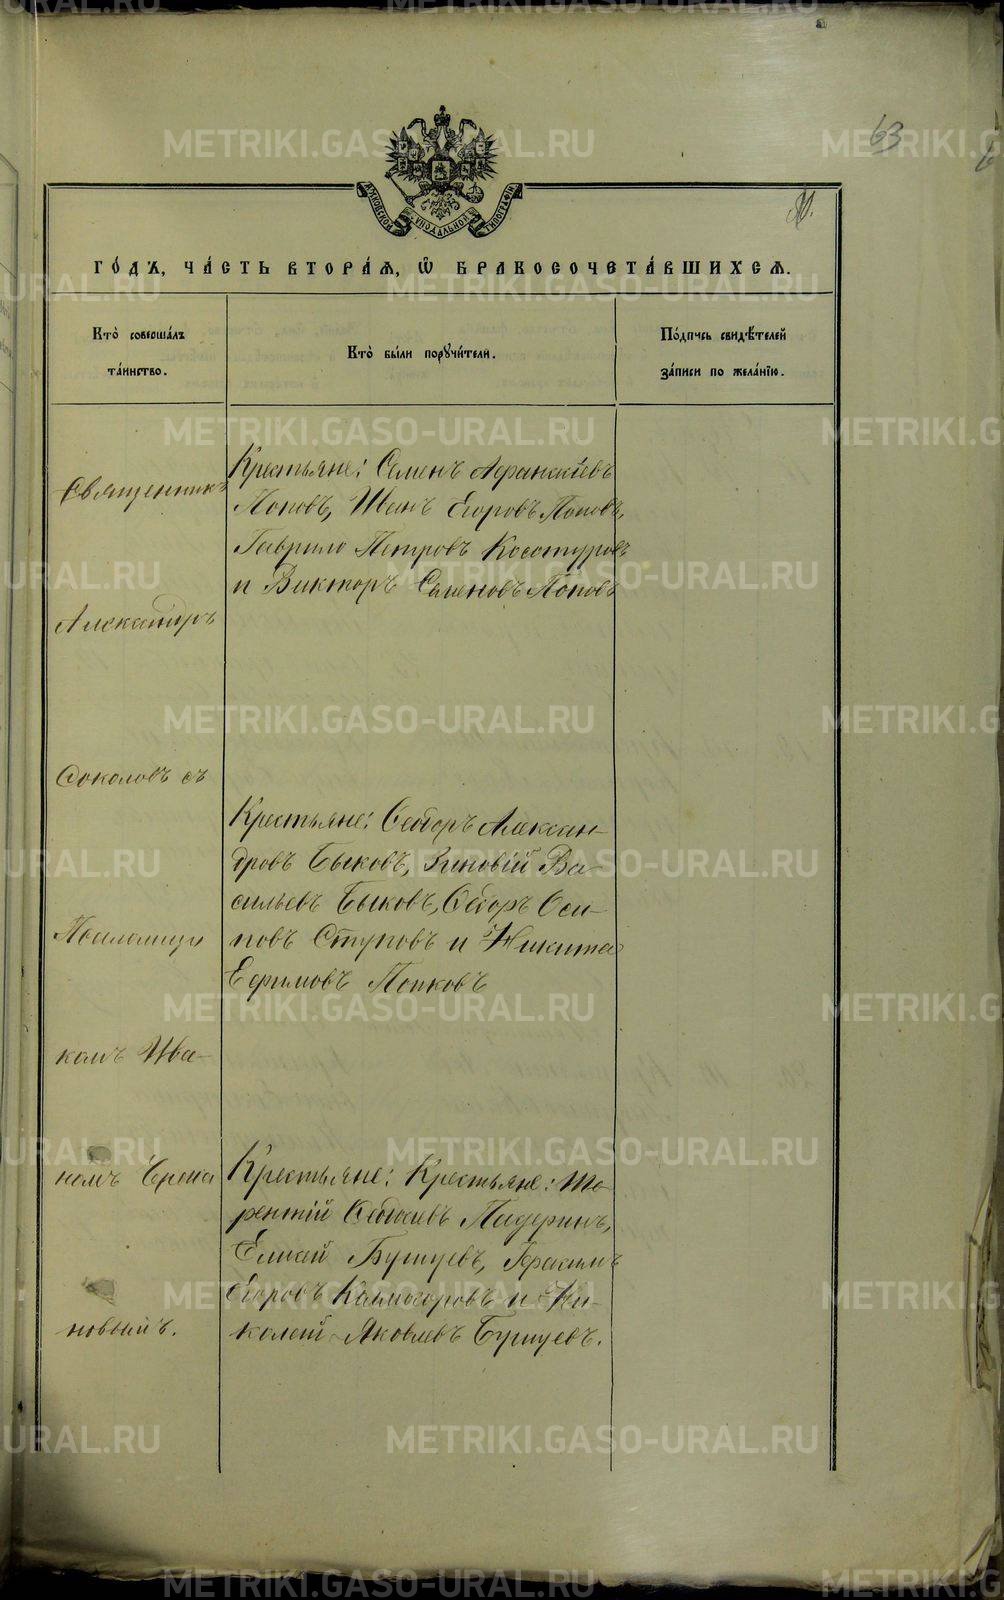 63
МОСКОВСКОЙ СѴНОДАЛЬНОЙ ТИПОГРАФІИ
ГО́ДЪ, ЧА́СТЬ ВТОРА́Я, Ѡ҆ БРАКОСОЧЕТА́ВШИХСЯ.
Кто̀ соверша́лъ
та́инство.
Кто̀ бы́ли порꙋчи́тели.
По́дпись свидѣ́телей
за́писи по жела́нїю.
Священникъ
Александръ
Соколовъ съ
Псаломщи
комъ Ива-
номъ
новымъ.
Крестьяне: Семенъ Афанасіевъ
Поповъ, Иванъ Егоровъ Поповъ,
Гаврило Петровъ Косотуровъ
и Викторъ Семеновъ Поповъ
Крестьяне: Ѳедоръ Алексан-
дровъ Быковъ, Зиновій Ва-
сильевъ Быковъ, Ѳедоръ Оси-
повъ Ступовъ и Никита
Ефимовъ Попковъ
Крестьяне: Крестьяне:
Падеринъ,
Елисей Бушуевъ, Герасимъ
Егоровъ и Ни-
колай Яковлевъ Бушуевъ.
METRIKI.GASO-URAL.RU